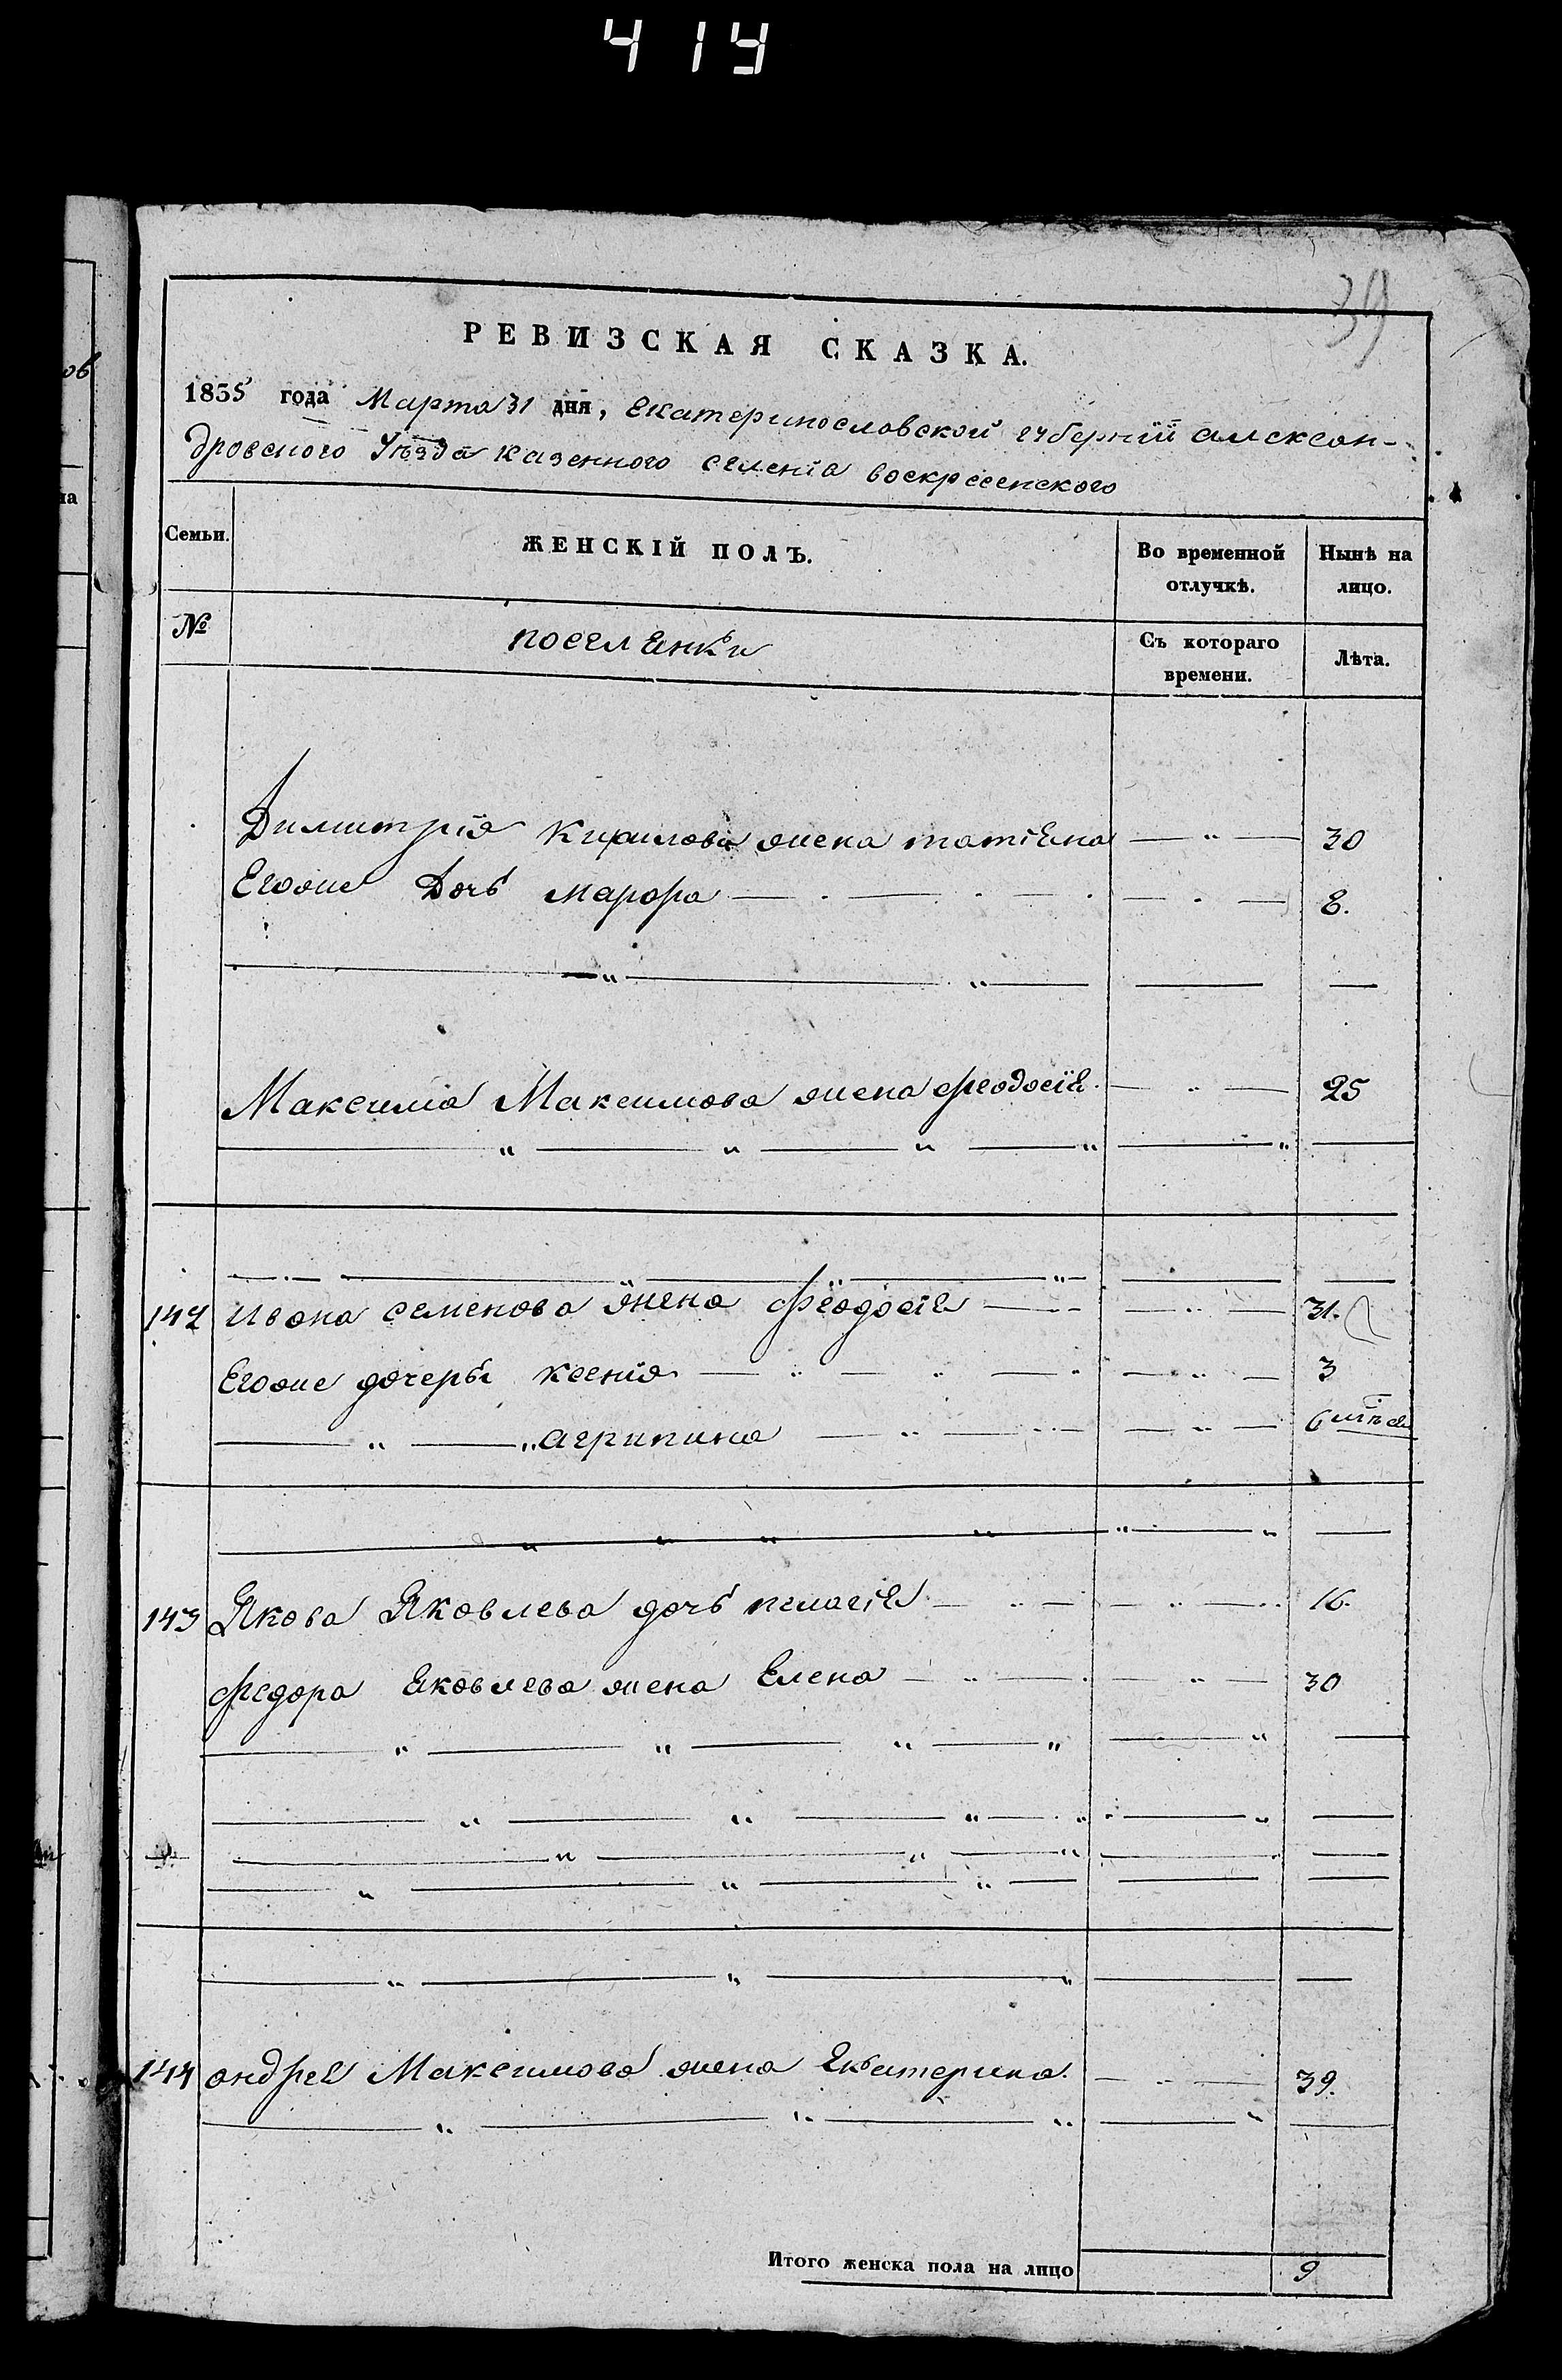 419
39
РЕВИЗСКАЯ СКАЗКА.
1835 года Марта 31 дня, Екатеринославской губернiи Алексан-
дровского Уѣзда казенного селенiя воскресенского
Семьи.
ЖЕНСКІЙ ПОЛЪ.
Во временной отлучкѣ.
Нынѣ на лицо.
№
поселянки
Съ котораго времени.
Лѣта.
Димитрiя Кирилова жена татiяна — " — 30
Егоже Дочь марфа — 8.
Максима Максимова жена феодосiя — " — 25
142 Ивана семенова жена Феодосiя — " — 31.
Егоже дочери ксенiя — " — 3
— " — " агрипина — " — 6 мѣся
143 Якова Яковлева дочь пелагiя — " — 16.
федора яковлева жена Елена — " — 30
144 андрея Максимова жена Екатерина — " — 39.
Итого женска пола на лицо 9